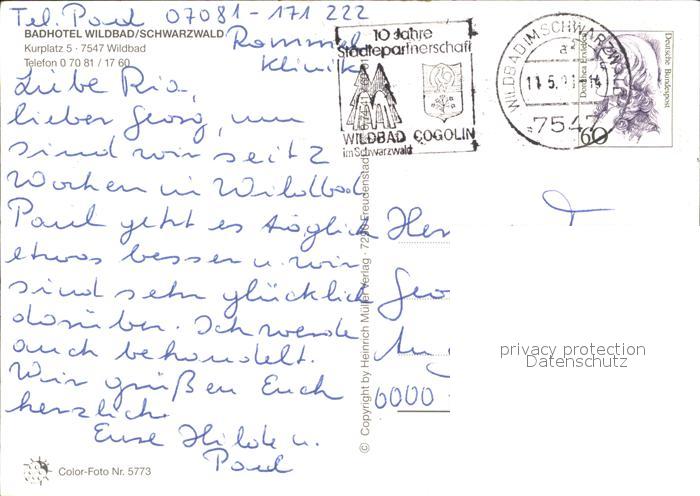 Tel. Paul 07081-171 222
BADHOTEL WILDBAD/SCHWARZWALD
Kurplatz 5 · 7547 Wildbad
Telefon 0 70 81 / 17 60
Rommel
Klinik
Liebe Ria,
lieber Georg, nun
sind wir seit 2
Wochen in Wildbad
Paul geht es täglich
etwas besser u. wir
sind sehr glücklich
darüber. Ich werde
auch behandelt.
Wir grüßen Euch
herzlich
Eure Hilde u.
Paul
Color-Foto Nr. 5773
© Copyright by Heinrich Müller Verlag · 7290 Freudenstadt
10 Jahre
Städtepartnerschaft
WILDBAD COGOLIN
im Schwarzwald
WILDBAD IM SCHWARZWALD
a
11.5.
7547
60
Deutsche Bundespost
Dorothea Erxleben
Her
Geo
An
6000
privacy protection
Datenschutz